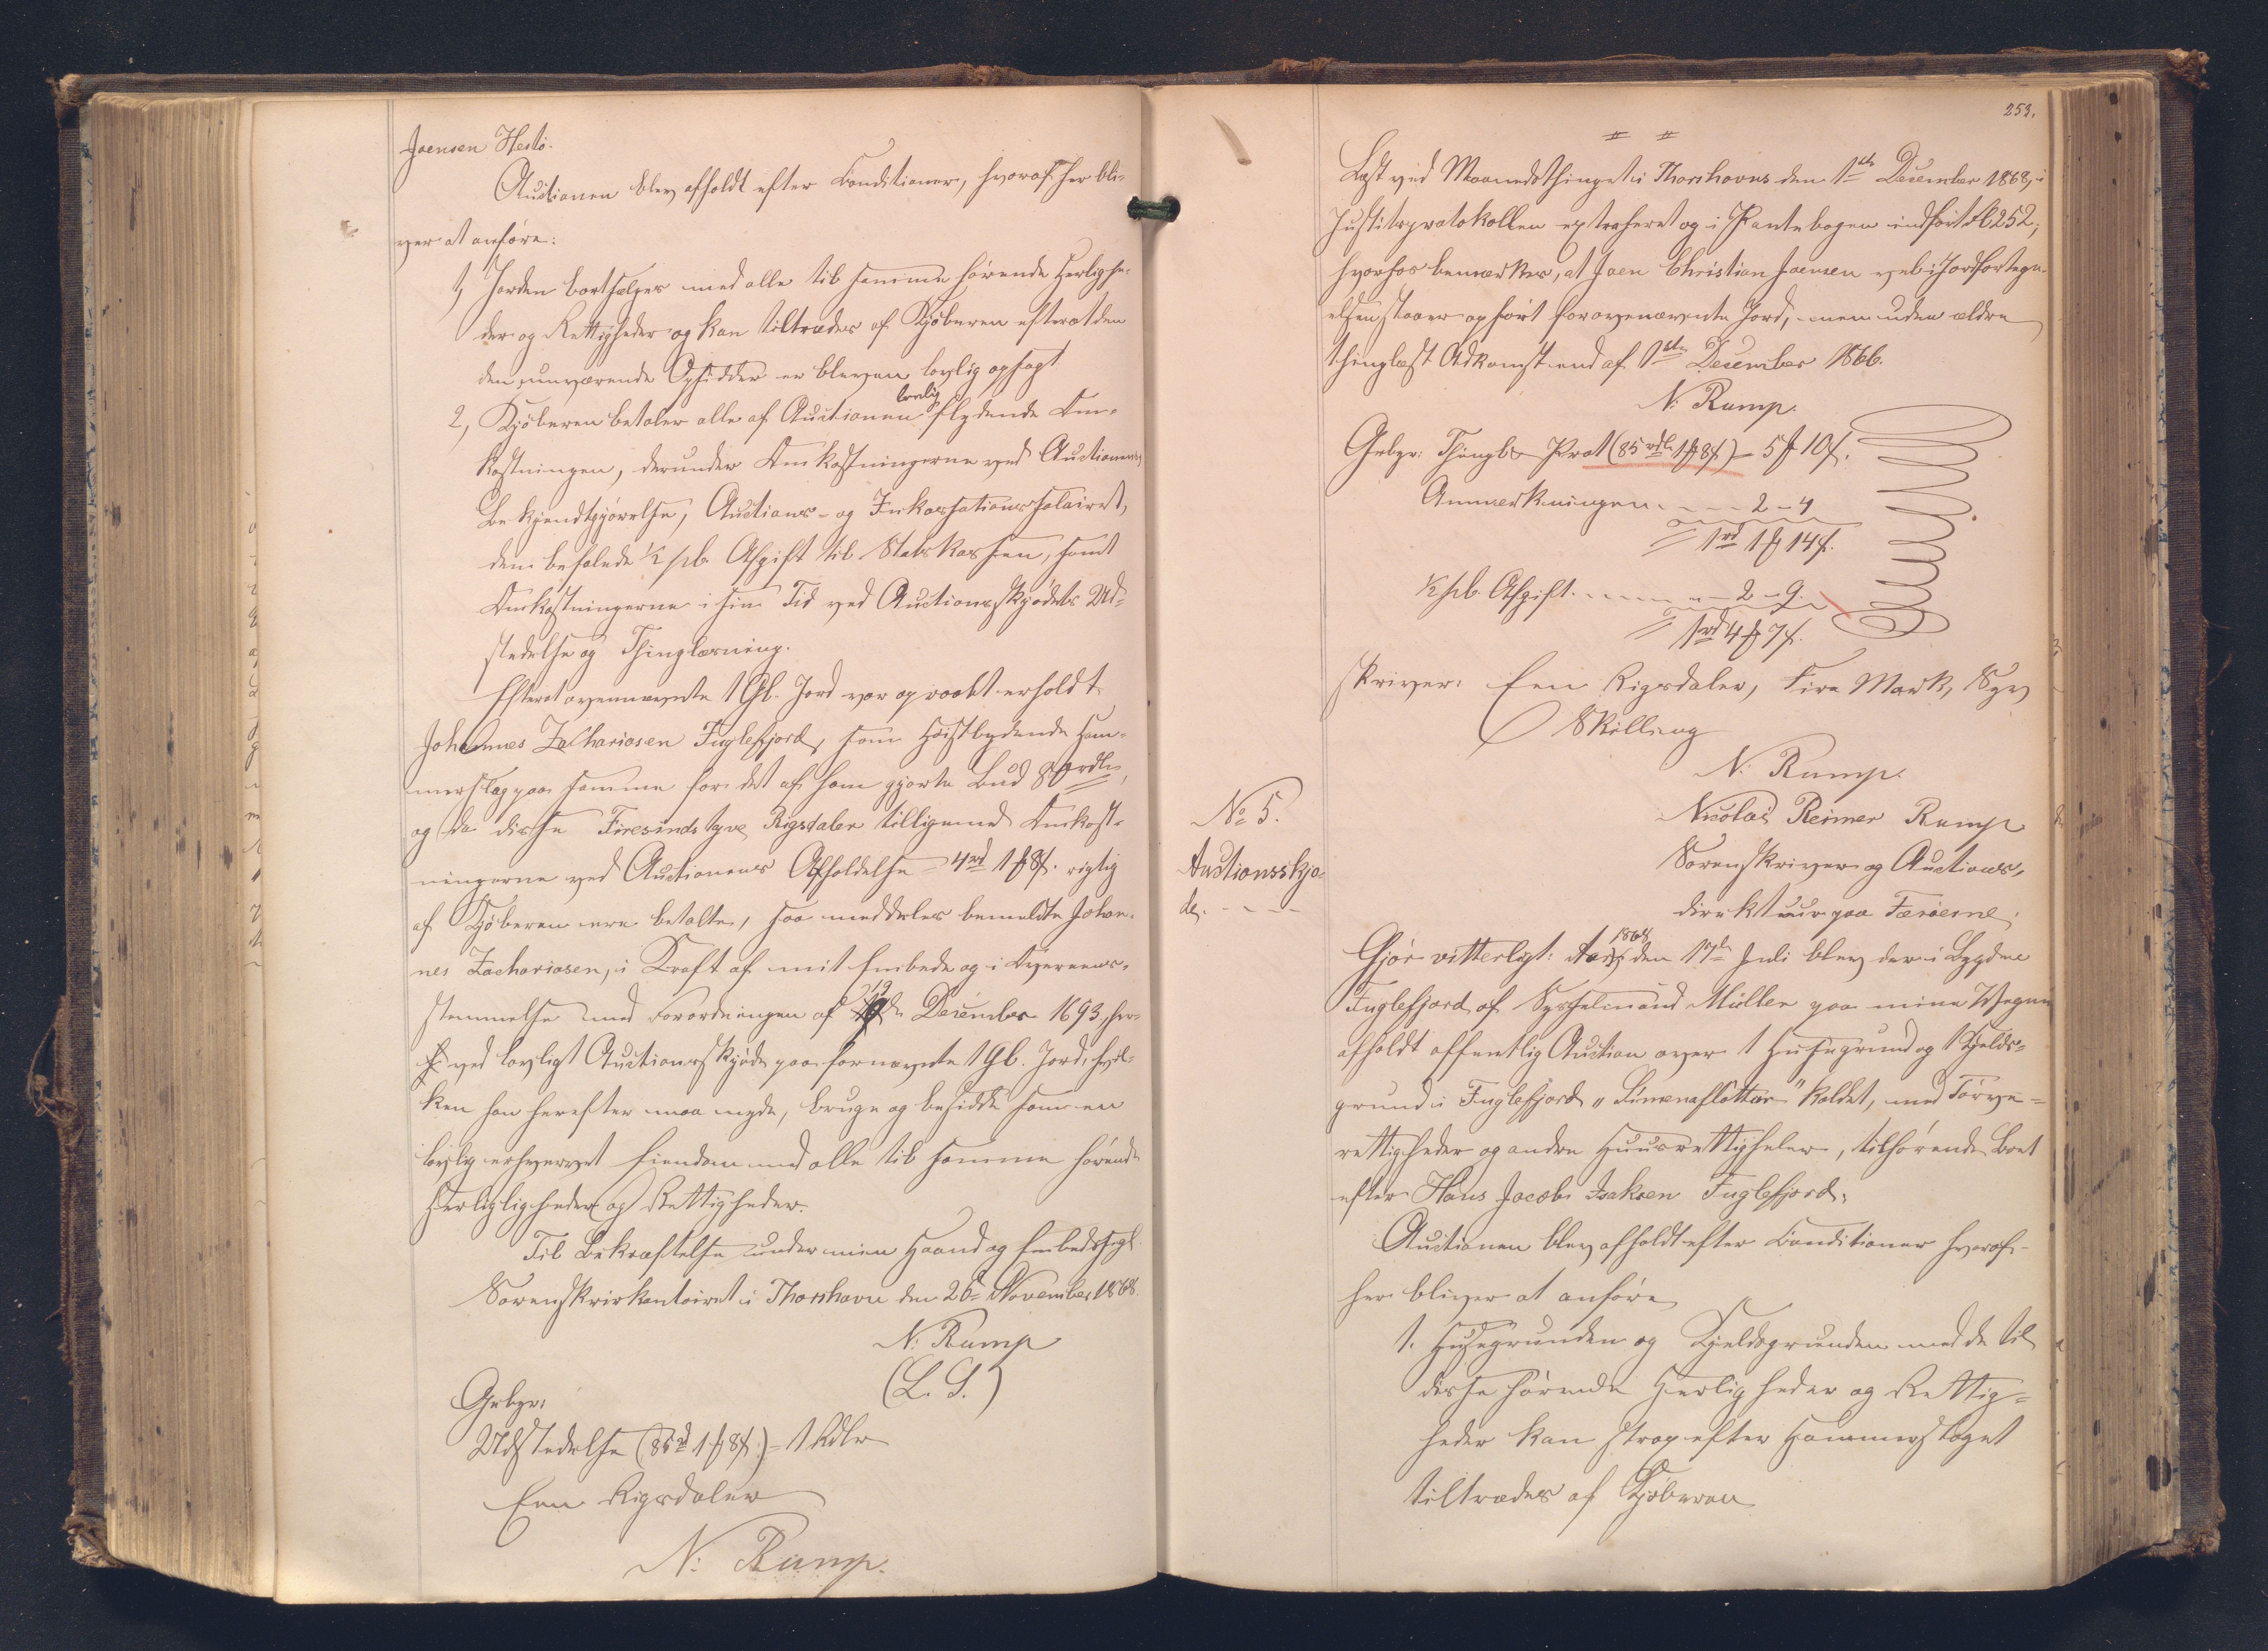 Joensen Hestö.
Auctionen blev afholdt efter Conditioner, hvoraf her bli-
ver at anføre:
1, Jorden bortsælges med alle til samme hørende Herlighe-
der og Rettigheder og kan tiltrædes af Kjøberen efterat den
den nuværende Opsidder er bleven lovlig opsagt.
2, Kjøberen betaler alle af Auctionen lovlig flydende Om-
kostninger, derunder Omkostningerne ved Auctionens
Bekjendtgjørelse, Auctions- og Inkassationssalairet,
den befalede ½ pCt. Afgift til Statskassen, samt
Omkostningerne i sin Tid ved Auctionsskjødets Ud-
stedelse og Thinglæsning.
Efterat ovennævnte 1 Gl. Jord var opraabt erholdt
Johannes Zachariasen Fuglefjord, som Høistbydende Ham-
merslag paa samme for det af ham gjorte Bud 80 rdlr,
og da disse Firesindstyve Rigsdaler tilligemed Omkost-
ningerne ved Auctionens Afholdelse - 4 rd 1 ℳ 8 β. rigtig
af Kjøberen ere betalte, saa meddeles bemeldte Johan-
nes Zachariasen, i Kraft af mit Embede og i Overeens-
stemmelse med Forordningen af 19 December 1693, her-
ved lovligt Auctionsskjøde paa fornævnte 1 Gl. Jord, hvil-
ken han herefter maa nyde, bruge og besidde som en
lovlig erhvervet Eiendom med alle til samme hørende
Herligligheder og Rettigheder.
Til Bekræftelse under min Haand og Embedssegl.
Sorenskriverkontoiret i Thorshavn den 26de November 1868.
N. Rump
(L. S.)
Gebyr:
Udstedelse (85 rd 1 ℳ 8 β.) = 1 Rdlr
Een Rigsdaler
N. Rump.
253.
Læst ved Maanedsthinget i Thorshavns den 1ste December 1868, i
Justitsprotokollen extraheret og i Pantebogen indført Fol 252;
hvorhos bemærkes, at Joen Christian Joensen vel i Jordfortegn-
elsen staaer opført for ovennævnte Jord, men uden ældre
thinglæst Adkomst end af 1ste December 1866.
N. Rump.
Gebyr: Thingl. Prot (85 rdl 1 ℳ 8 β) - 5 ℳ 10 β.
Anmærkningen - - - - 2 - 4
1 rd 1 ℳ 14 β.
½ pCt. Afgift - - - - - 2 - 9.
1 rd 4 ℳ 7 β.
skriver: Een Rigsdaler, Fire Mark, Syv
Skilling
N. Rump.
No 5.
Auctionsskjø-
de. - - -
Nicolai Reimer Rump
Sorenskriver og Auctions-
direkteur paa Færøerne.
Gjør vitterligt: Aar 1868 den 17de Juli blev der i Bygden
Fuglefjord af Sysselmand Müller paa mine Vegne
afholdt offentlig Auction over 1 Husegrund og 1 Kjelds-
grund i Fuglefjord „Simenafløttur“ kaldet, med Tørve-
rettigheder og andre Huusrettigheder, tilhørende Boet
efter Hans Jacob Isaksen Fuglefjord.
Auctionen blev afholdt efter Conditioner hvoraf
her bliver at anføre
1. Husegrunden og Kjeldsgrunden med de til
disse hørende Herligheder og Rettig-
heder kan strax efter Hammerslaget
tiltrædes af Kjøberen